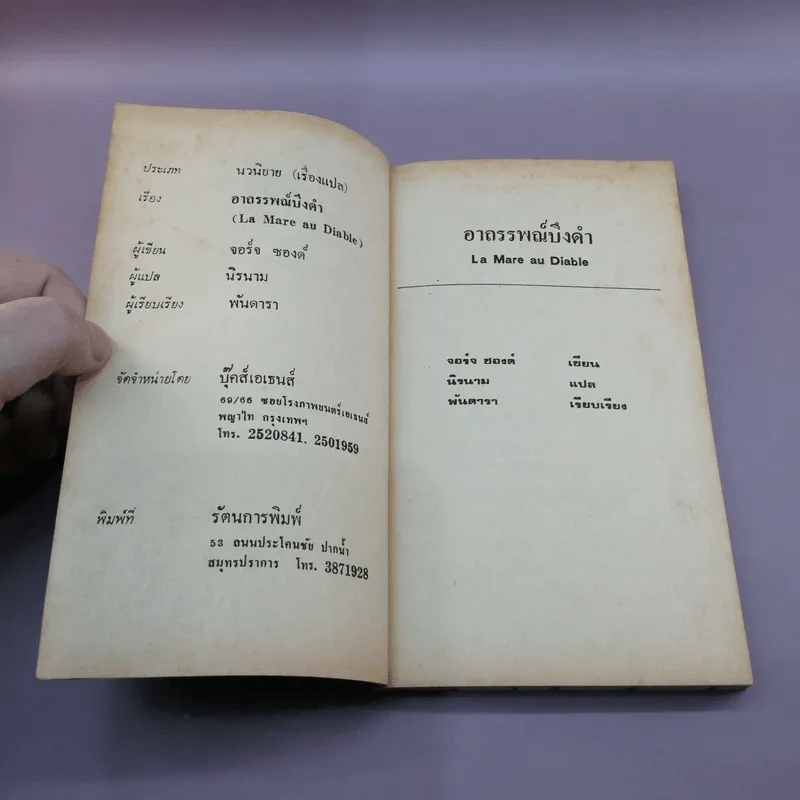 ประเภท นวนิยาย (เรื่องแปล)
เรื่อง อาถรรพณ์บึงดำ
(La Mare au Diable)
ผู้เขียน จอร์จ ซองด์
ผู้แปล นิรนาม
ผู้เรียบเรียง พันดารา
จัดจำหน่ายโดย บุ๊คส์เอเธนส์
69/66 ซอยโรงภาพยนตร์เอเธนส์
พญาไท กรุงเทพฯ
โทร. 2520841, 2501959
พิมพ์ที่ รัตนการพิมพ์
53 ถนนประโคนชัย ปากน้ำ
สมุทรปราการ โทร. 3871928
อาถรรพณ์บึงดำ
La Mare au Diable
จอร์จ ซองด์ เขียน
นิรนาม แปล
พันดารา เรียบเรียง